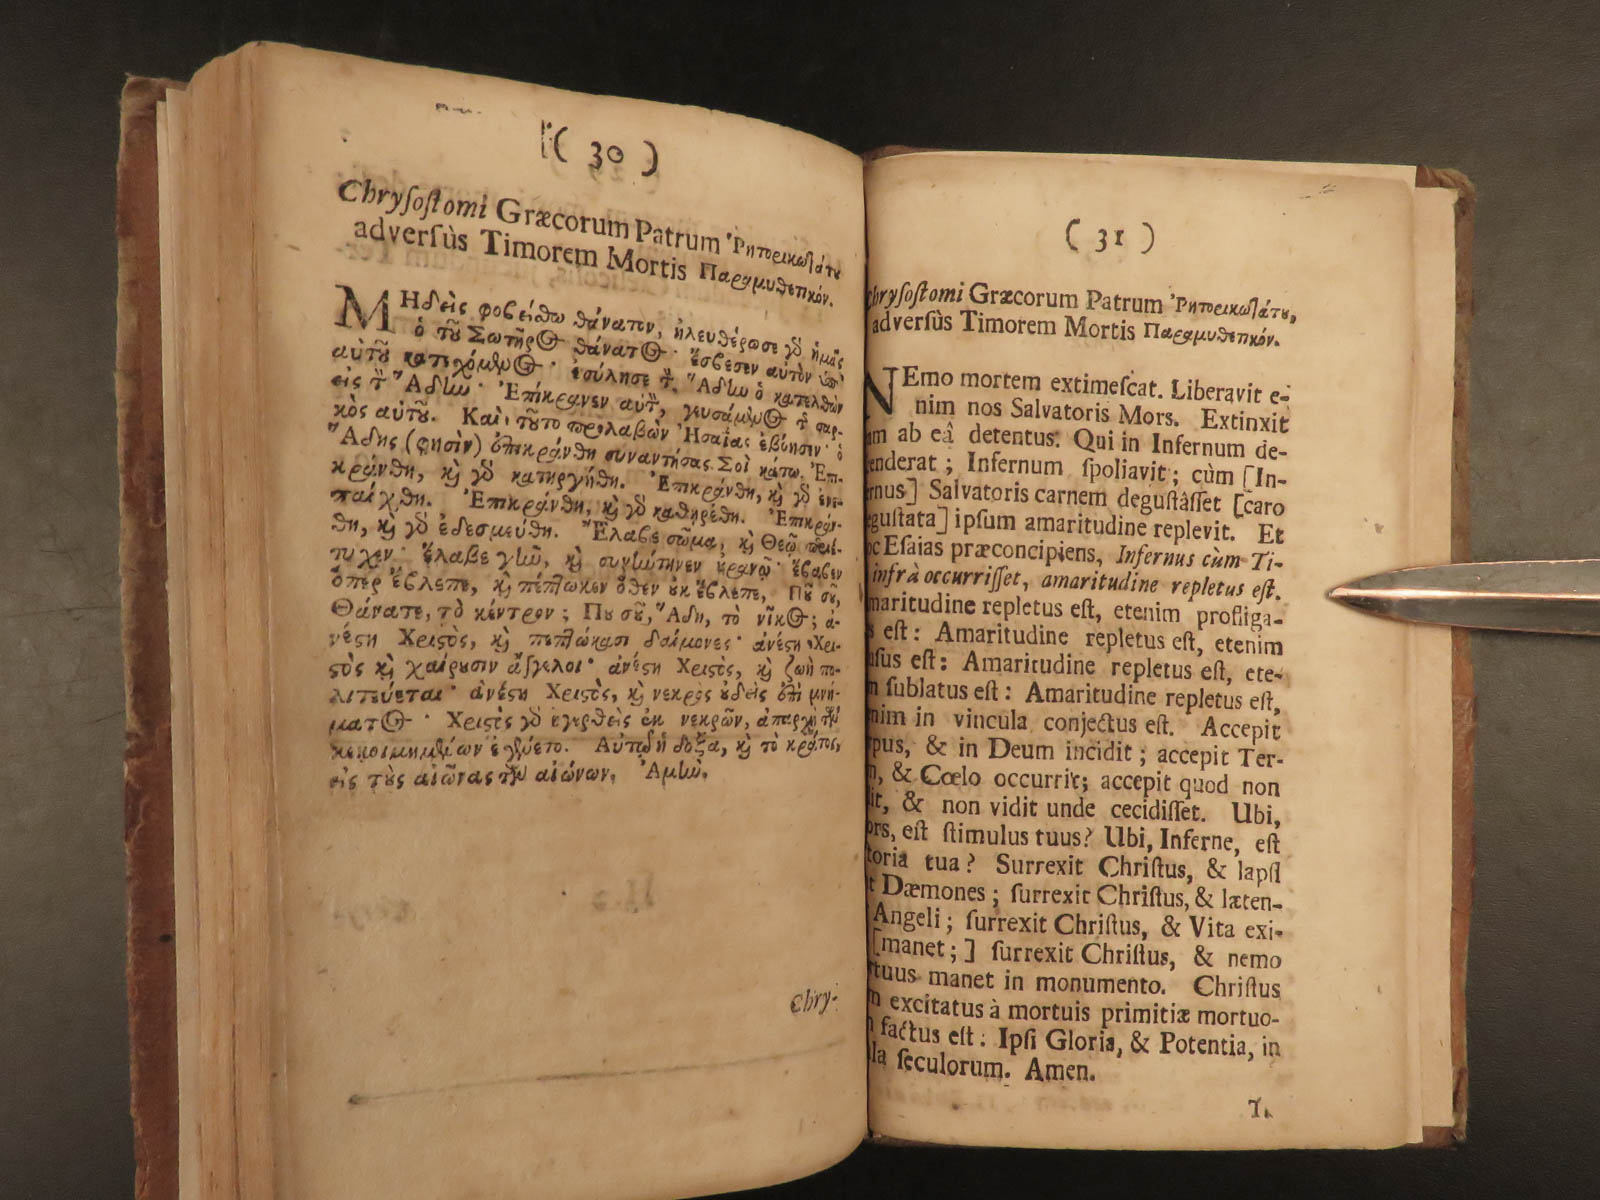 ( 30 )
Chryſoſtomi Græcorum Patrum Ῥητορικωτάτου
adverſùs Timorem Mortis Παραμυθητικόν.
ΜΗδεὶς φοβείσθω θάνατον, ἠλευθέρωσε γὸ ἡμᾶς
ὁ τοῦ Σωτῆρος θάνατος· ἔσβεσεν αὐτὸν ὑπ'
αὐτοῦ κατεχόμενος· ἐσύλησε τὸν Ἅδην ὁ κατελθὼν
εἰς τὸν Ἅδην· Ἐπίκρανεν αὐτὸν, γευσάμενος τῆς σαρ-
κὸς αὐτοῦ. Καὶ τοῦτο προλαβὼν Ἡσαΐας ἐβόησεν· ὁ
Ἅδης (φησὶν) ἐπικράνθη συναντήσας Σοὶ κάτω. Ἐπι-
κράνθη, καὶ γὸ κατηργήθη. Ἐπικράνθη, καὶ γὸ ἐνε-
παίχθη. Ἐπικράνθη, καὶ γὸ καθηρέθη. Ἐπικράν-
θη, καὶ γὸ ἐδεσμεύθη. Ἔλαβε σῶμα, καὶ Θεῷ περιέ-
τυχεν· ἔλαβε γῆν, καὶ συνήντηκεν οὐρανῷ· ἔλαβεν
ὅπερ ἔβλεπε, καὶ πέπτωκεν ὅθεν οὐκ ἔβλεπε, Ποῦ σοῦ,
Θάνατε, τὸ κέντρον; Ποῦ σοῦ, Ἅδη, τὸ νῖκος; ἀ-
νέστη Χριστὸς, καὶ πεπτώκασι δαίμονες· ἀνέστη Χρι-
στὸς καὶ χαίρουσιν ἄγγελοι· ἀνέστη Χριστὸς, καὶ ζωὴ πο-
λιτεύεται· ἀνέστη Χριστὸς, καὶ νεκρὸς οὐδεὶς ἐπὶ μνή-
ματος· Χριστὸς γὸ ἐγερθεὶς ἐκ νεκρῶν, ἀπαρχὴ τῶν
κεκοιμημένων ἐγένετο. Αὐτῷ ἡ δόξα, καὶ τὸ κράτος,
εἰς τοὺς αἰῶνας τῶν αἰώνων, Ἀμήν.
Chry-
( 31 )
Chryſoſtomi Græcorum Patrum Ῥητορικωτάτου,
adverſùs Timorem Mortis Παραμυθητικόν.
NEmo mortem extimeſcat. Liberavit e-
nim nos Salvatoris Mors. Extinxit
am ab eâ detentus: Qui in Infernum de-
enderat; Infernum ſpoliavit; cùm [In-
rnus] Salvatoris carnem deguſtâſſet [caro
guſtata] ipſum amaritudine replevit. Et
oc Eſaias præconcipiens, Infernus cùm Ti-
infrà occurriſſet, amaritudine repletus eſt.
maritudine repletus eſt, etenim profliga-
s eſt: Amaritudine repletus eſt, etenim
uſus eſt: Amaritudine repletus eſt, ete-
m ſublatus eſt: Amaritudine repletus eſt,
nim in vincula conjectus eſt. Accepit
rpus, & in Deum incidit; accepit Ter-
m, & Cœlo occurrit; accepit quod non
dit, & non vidit unde cecidiſſet. Ubi,
ors, eſt ſtimulus tuus? Ubi, Inferne, eſt
toria tua? Surrexit Chriſtus, & lapſi
t Dæmones; ſurrexit Chriſtus, & læten-
Angeli; ſurrexit Chriſtus, & Vita exi-
[manet;] ſurrexit Chriſtus, & nemo
rtuus manet in monumento. Chriſtus
m excitatus à mortuis primitiæ mortuo-
n factus eſt: Ipſi Gloria, & Potentia, in
la ſeculorum. Amen.